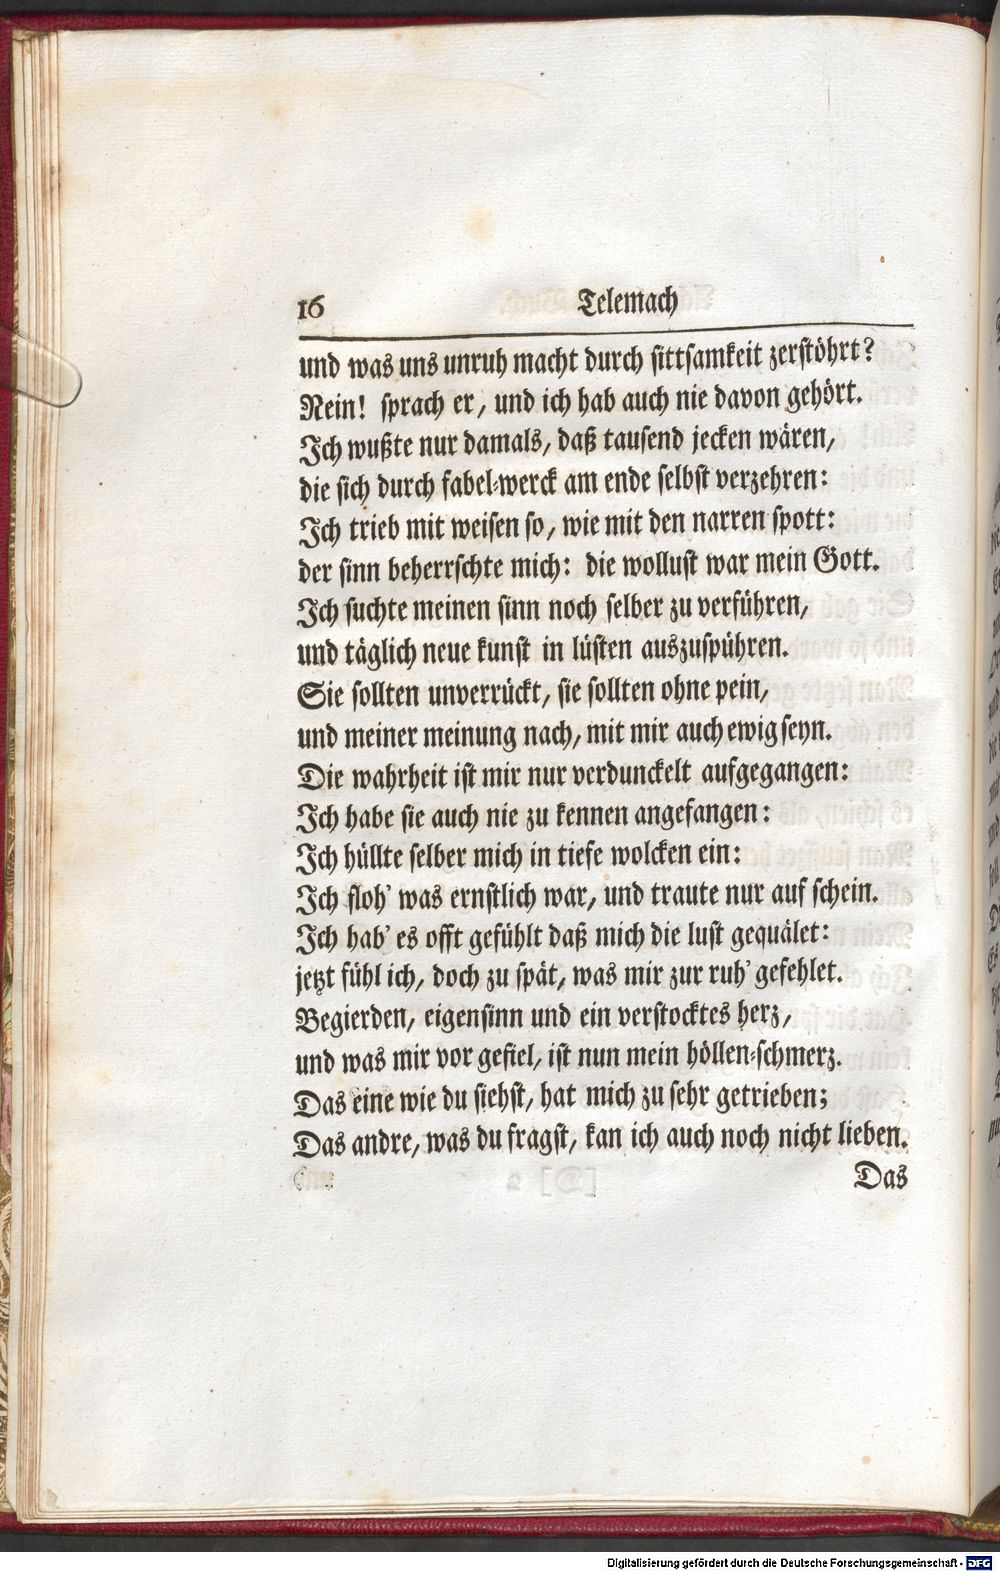 16 Telemach
und was uns unruh macht durch sittsamkeit zerstöhrt?
Nein! sprach er, und ich hab auch nie davon gehört.
Ich wußte nur damals, daß tausend jecken wären,
die sich durch fabel-werck am ende selbst verzehren:
Ich trieb mit weisen so, wie mit den narren spott:
der sinn beherrschte mich: die wollust war mein Gott.
Ich suchte meinen sinn noch selber zu verführen,
und täglich neue kunst in lüsten auszuspühren.
Sie sollten unverrückt, sie sollten ohne pein,
und meiner meinung nach, mit mir auch ewig seyn.
Die wahrheit ist mir nur verdunckelt aufgegangen:
Ich habe sie auch nie zu kennen angefangen:
Ich hüllte selber mich in tiefe wolcken ein:
Ich floh' was ernstlich war, und traute nur auf schein.
Ich hab' es offt gefühlt daß mich die lust gequälet:
jetzt fühl ich, doch zu spät, was mir zur ruh' gefehlet.
Begierden, eigensinn und ein verstocktes herz,
und was mir vor gefiel, ist nun mein höllen-schmerz.
Das eine wie du siehst, hat mich zu sehr getrieben;
Das andre, was du fragst, kan ich auch noch nicht lieben.
Das
Digitalisierung gefördert durch die Deutsche Forschungsgemeinschaft - DFG